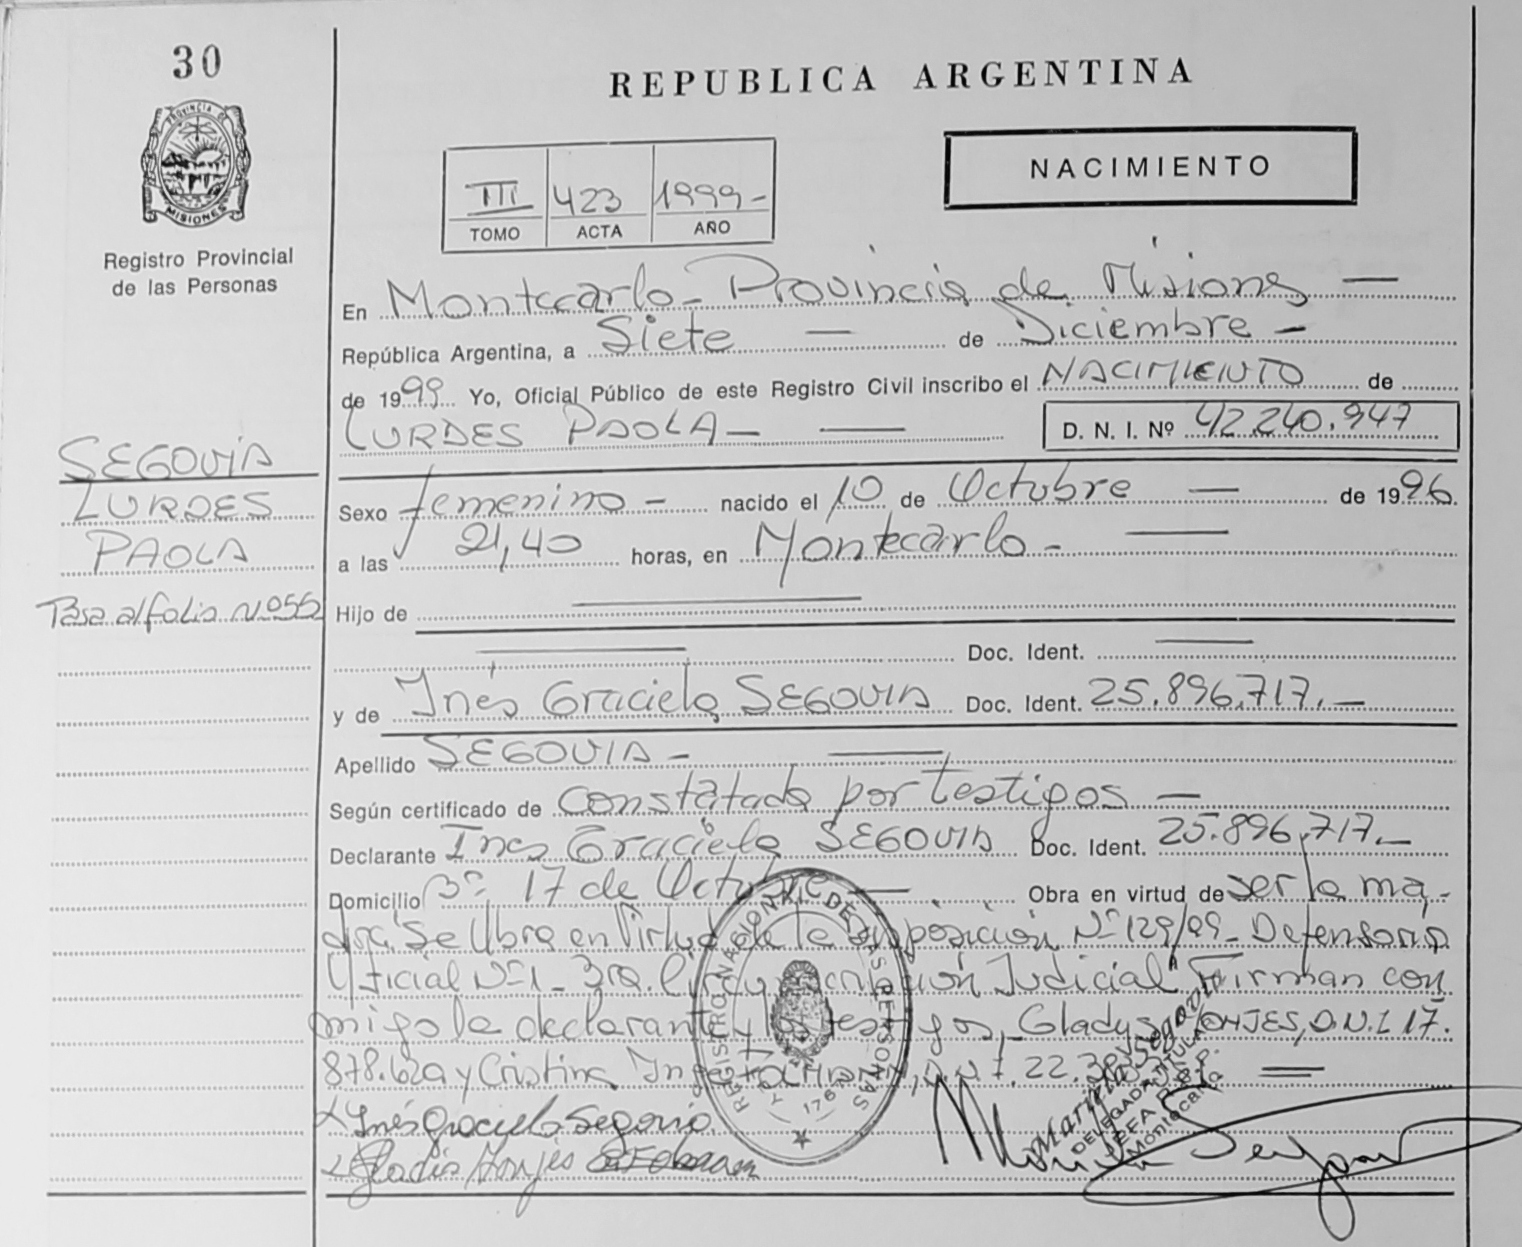 30
REPUBLICA ARGENTINA
PROVINCIA DE MISIONES
Registro Provincial
de las Personas
III 423 1999-
TOMO ACTA AÑO
NACIMIENTO
En Montecarlo - Provincia de Misiones —
República Argentina, a Siete — de Diciembre —
de 1999 Yo, Oficial Público de este Registro Civil inscribo el NACIMIENTO de
LURDES PAOLA — — D. N. I. Nº 42.240.947
SEGOVIA
LURDES
PAOLA
Pasa al folio Nº 55
Sexo femenino - nacido el 10 de Octubre — de 1996.
a las 21,40 horas, en Montecarlo - —
Hijo de —
— Doc. Ident. —
y de Inés Graciela SEGOVIA Doc. Ident. 25.896.717.—
Apellido SEGOVIA - —
Según certificado de Constatado por Testigos —
Declarante Ines Graciela SEGOVIA Doc. Ident. 25.896.717.—
Domicilio Bº 17 de Octubre — Obra en virtud de ser la ma-
dre. Se Labra en Virtud de la disposición Nº 129/99 - Defensoria
Oficial Nº 1 - 3ra. Circunscripción Judicial Firman con
migo la declarante y los testigos, Gladys MONJES, D.N.I 17.
878.620 y Cristina 22.
REGISTRO NACIONAL DE LAS PERSONAS
1767
Inés Graciela Segovia
Gladis Monjes
DELEGADA TITULAR
JEFA R.P.P.
Montecarlo